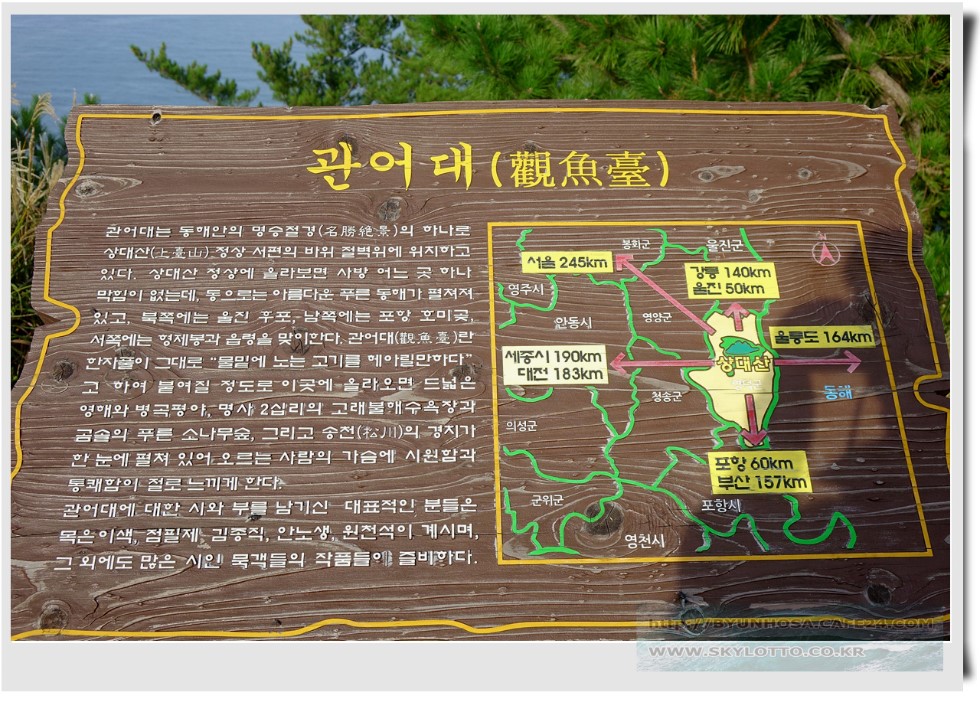 관어대(觀魚臺)
관어대는 동해안의 명승절경(名勝絶景)의 하나로
상대산(上臺山)정상 서편의 바위 절벽위에 위치하고
있다. 상대산 정상에 올라보면 사방 어느 곳 하나
막힘이 없는데, 동으로는 아름다운 푸른 동해가 펼쳐져
있고, 북쪽에는 울진 후포, 남쪽에는 포항 호미곶,
서쪽에는 형제봉과 읍령을 맞이한다. 관어대(觀魚臺)란
한자풀이 그대로 "물밑에 노는 고기를 헤아릴만하다"
고 하여 붙여질 정도로 이곳에 올라오면 드넓은
영해와 병곡평야, 명사 2십리의 고래불해수욕장과
곰솔의 푸른 소나무숲, 그리고 송천(松川)의 경치가
한 눈에 펼쳐 있어 오르는 사람의 가슴에 시원함과
통쾌함이 절로 느끼게 한다.
관어대에 대한 시와 부를 남기신 대표적인 분들은
목은이색, 점필제, 김종직, 안노생, 원천석이 계시며,
그 외에도 많은 시인 묵객들의 작품들이 즐비하다.
봉화군
울진군
서울 245km
강릉 140km
울진 50km
영주시
안동시
영양군
울릉도 164km
세종시 190km
대전 183km
상대산
동해
청송군
의성군
포항 60km
부산 157km
군위군
포항시
영천시
http://BYUNHOSA.CAFE24.COM
WWW.SKYLOTTO.CO.KR